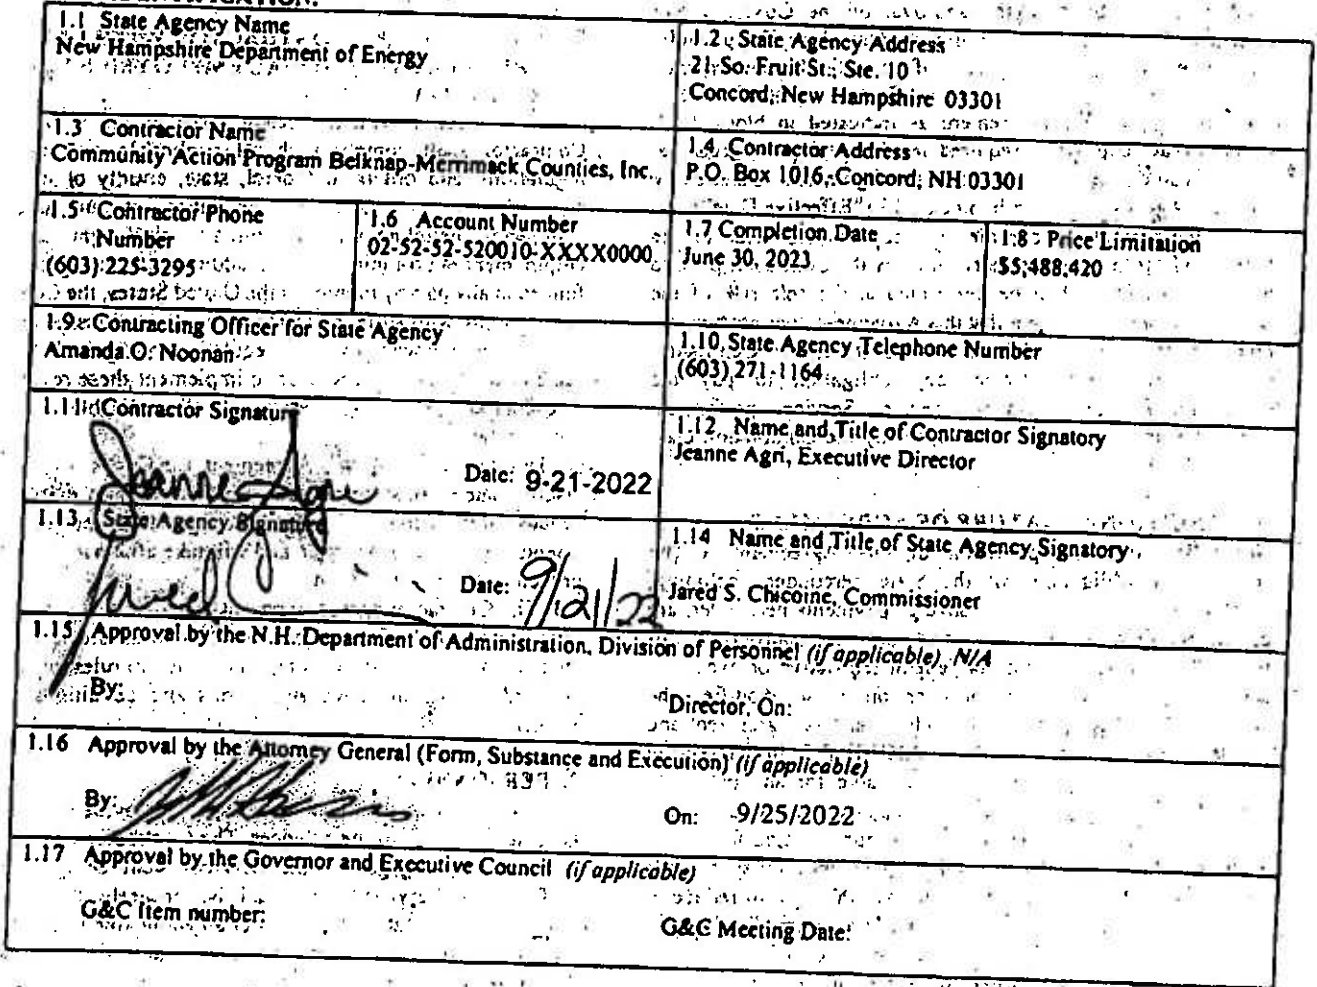 1.1 State Agency Name
New Hampshire Department of Energy
1.2 State Agency Address
21 So. Fruit St., Ste. 10
Concord, New Hampshire 03301
1.3 Contractor Name
Community Action Program Belknap-Merrimack Counties, Inc.
1.4 Contractor Address
P.O. Box 1016, Concord, NH 03301
1.5 Contractor Phone
Number
(603) 225-3295
1.6 Account Number
02-52-52-520010-XXXX0000
1.7 Completion Date
June 30, 2023
1.8 Price Limitation
$5,488,420
1.9 Contracting Officer for State Agency
Amanda O. Noonan
1.10 State Agency Telephone Number
(603) 271-1164
1.11 Contractor Signature
Jeanne Agri
Date: 9-21-2022
1.12 Name and Title of Contractor Signatory
Jeanne Agri, Executive Director
1.13 State Agency Signature
Jared
Date: 9/21/22
1.14 Name and Title of State Agency Signatory
Jared S. Chicoine, Commissioner
1.15 Approval by the N.H. Department of Administration, Division of Personnel (if applicable) N/A
By:
Director, On:
1.16 Approval by the Attorney General (Form, Substance and Execution) (if applicable)
By:
On: 9/25/2022
1.17 Approval by the Governor and Executive Council (if applicable)
G&C Item number:
G&C Meeting Date: